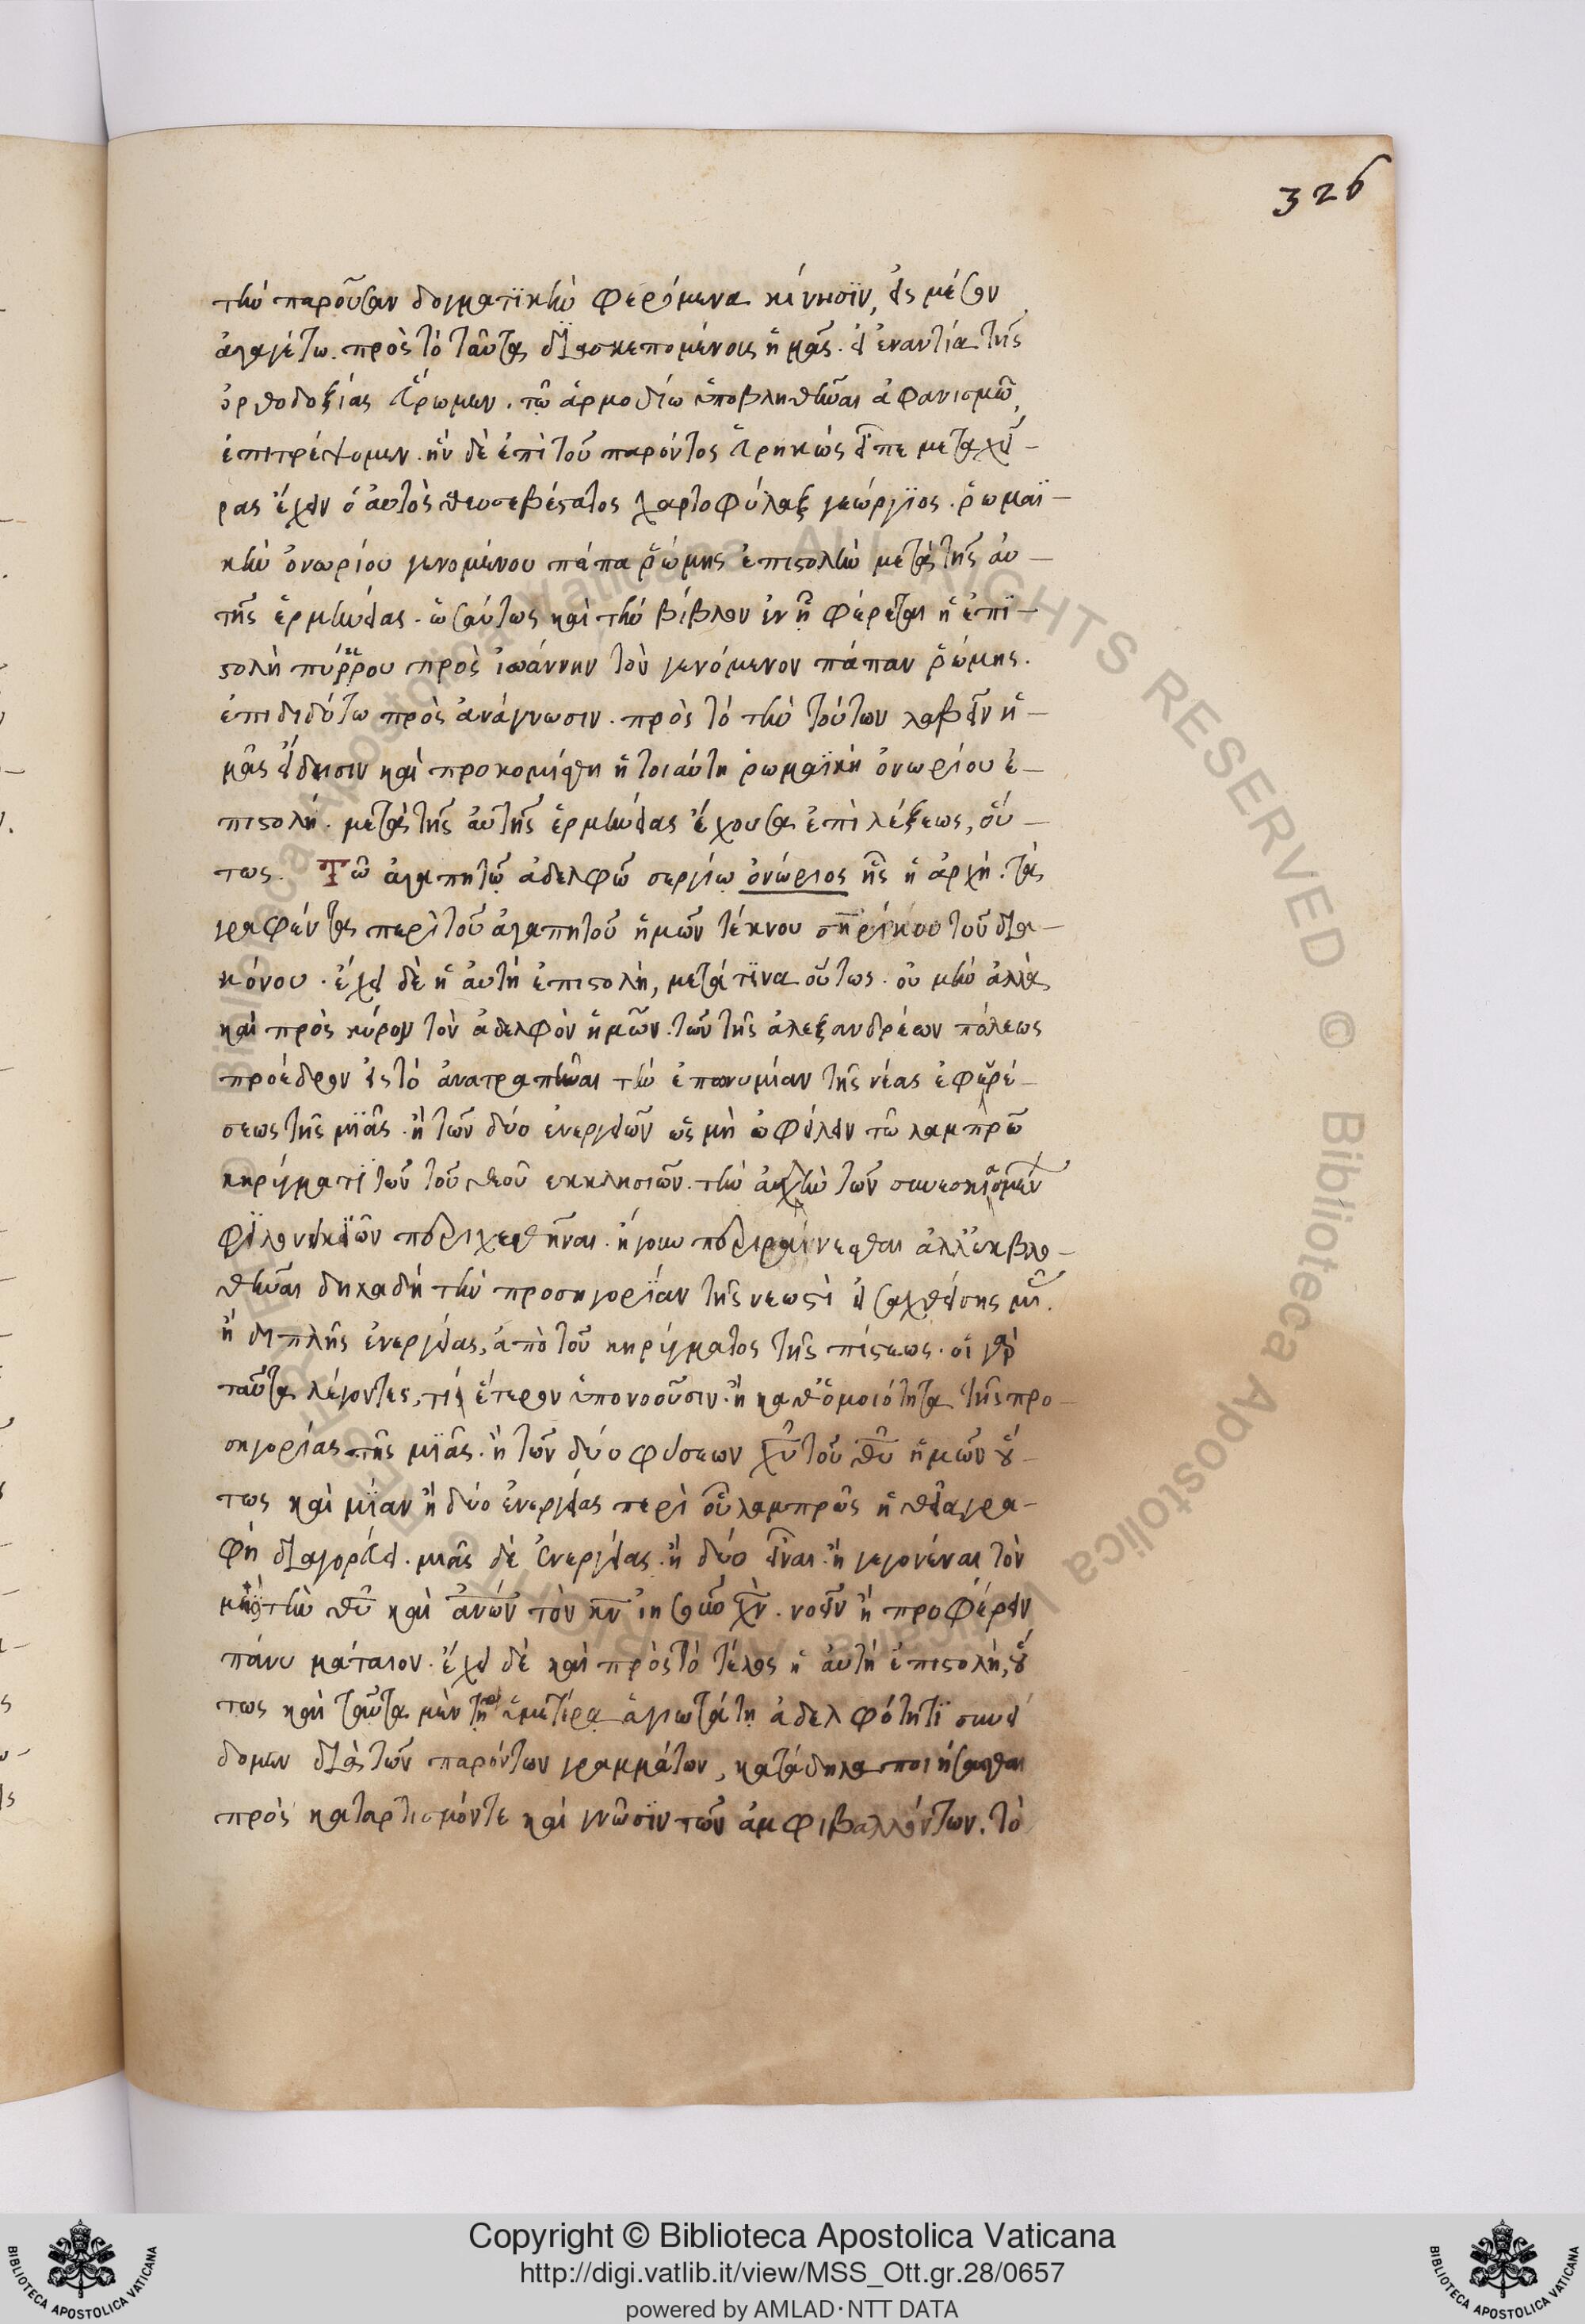 326
τὴν παροῦσαν δογματϊκὴν φερόμενα κίνησϊν, εἰς μέσον
ἀγαγέτω. πρὸς τὸ ταῦτα διασκεπομένους ἡμᾶς. εἰ ἐναντία τῆς
ὀρθοδοξίας εὕρωμεν. τῶ ἁρμοδίω ὑποβληθῆναι ἀφανισμῶ,
ἐπιτρέψομεν. ἣν δὲ ἐπὶ τοῦ παρόντος εἰρηκὼς εἶπε μεταχεῖ-
ρας ἔχειν ὁ αὐτὸς θεοσεβέστατος χαρτοφύλαξ γεώργϊος. ῥωμαϊ-
κὴν ὀνωρίου γενομένου πάπα ῥώμης ἐπιστολὴν μετὰ τῆς αὐ-
τῆς ἑρμηνείας. ὡσαύτως καὶ τὴν βίβλον ἐν ἧ φέρεται ἡ ἐπϊ-
στολὴ πύρρου πρὸς ἰωάννην τὸν γενόμενον πάπαν ῥώμης.
ἐπιδιδότω πρὸς ἀνάγνωσιν. πρὸς τὸ τὴν τούτων λαβεῖν ἡ-
μᾶς εἴδησιν καὶ προκομίσθη ἡ τοιαύτη ῥωμαϊκὴ ὀνωρίου ἐ-
πιστολή. μετὰ τῆς αὐτῆς ἑρμηνείας ἔχουσα ἐπὶ λέξεως, οὕ-
τως. Τῶ ἀγαπητῶ ἀδελφῶ σεργίω ὀνώριος ἧς ἡ ἀρχή. τὰ
γραφέντα περὶ τοῦ ἀγαπητοῦ ἡμῶν τέκνου σηρίκου τοῦ δια-
κόνου. ἔχει δὲ ἡ αὐτὴ ἐπιστολὴ, μετά τϊνα οὕτως. οὐ μὴν ἀλλὰ
καὶ πρὸς κύρον τὸν ἀδελφὸν ἡμῶν. τῶν τῆς ἀλεξανδρέων πόλεως
προέδρον εἰς τὸ ἀνατραπῆναι τὴν ἐπωνυμίαν τῆς νέας ἐφευρέ-
σεως τῆς μϊᾶς. ἢ τῶν δύο ἐνεργειῶν ὡς μὴ ὀφείλειν τῶ λαμπρῶ
κηρύγματϊ τῶν τοῦ θεοῦ εκκλησιῶν. τὴν ἀχλὺν τῶν συνεσκιασμέν
φϊλονεικϊῶν περιχεθῆναι. ἤγουν περιραίνεσθαι ἀλλ' ἐκβλη-
θῆναι δηλαδὴ τὴν προσηγορίαν τῆς νεωστὶ εἰσαχθείσης μι.
ἢ διπλῆς ἐνεργείας, ἀπὸ τοῦ κηρύγματος τῆς πίστεως. οἱ γὰρ
ταῦτα λέγοντες, τί ἕτερον ὑπονοοῦσιν. ἢ καθ' ὁμοιότητα τῆς προ-
σηγορίας τῆς μϊᾶς. ἢ τῶν δύο φύσεων χυ τοῦ θυ ἡμῶν οὕ-
τως καὶ μϊαν ἢ δύο ἐνεργείας περὶ οὗ λαμπρῶς ἡ θεία γρα-
φὴ διαγορεύει. μιᾶς δὲ ἐνεργείας. ἢ δύο εἶναι. ἢ γεγονέναι τὸν
μεσίτην θυ καὶ ἀνων τὸν κν ἰησοῦν χν. νοεῖν ἢ προφέρειν
πάνυ μάταιον. ἔχει δὲ καὶ πρὸς τὸ τέλος ἡ αὐτὴ ἐπιστολὴ, οὕ
τως καὶ ταῦτα μὲν τῆ ὑμετέρα ἁγιωτάτη ἀδελφότητϊ συνεί
δομεν διὰ τῶν παρόντων γραμμάτων, κατάδηλα ποιήσασθαι
πρὸς καταρτισμόν τε καὶ γνῶσϊν τῶν ἀμφιβαλλόντων. τὸ
Copyright © Biblioteca Apostolica Vaticana
http://digi.vatlib.it/view/MSS_Ott.gr.28/0657
powered by AMLAD·NTT DATA